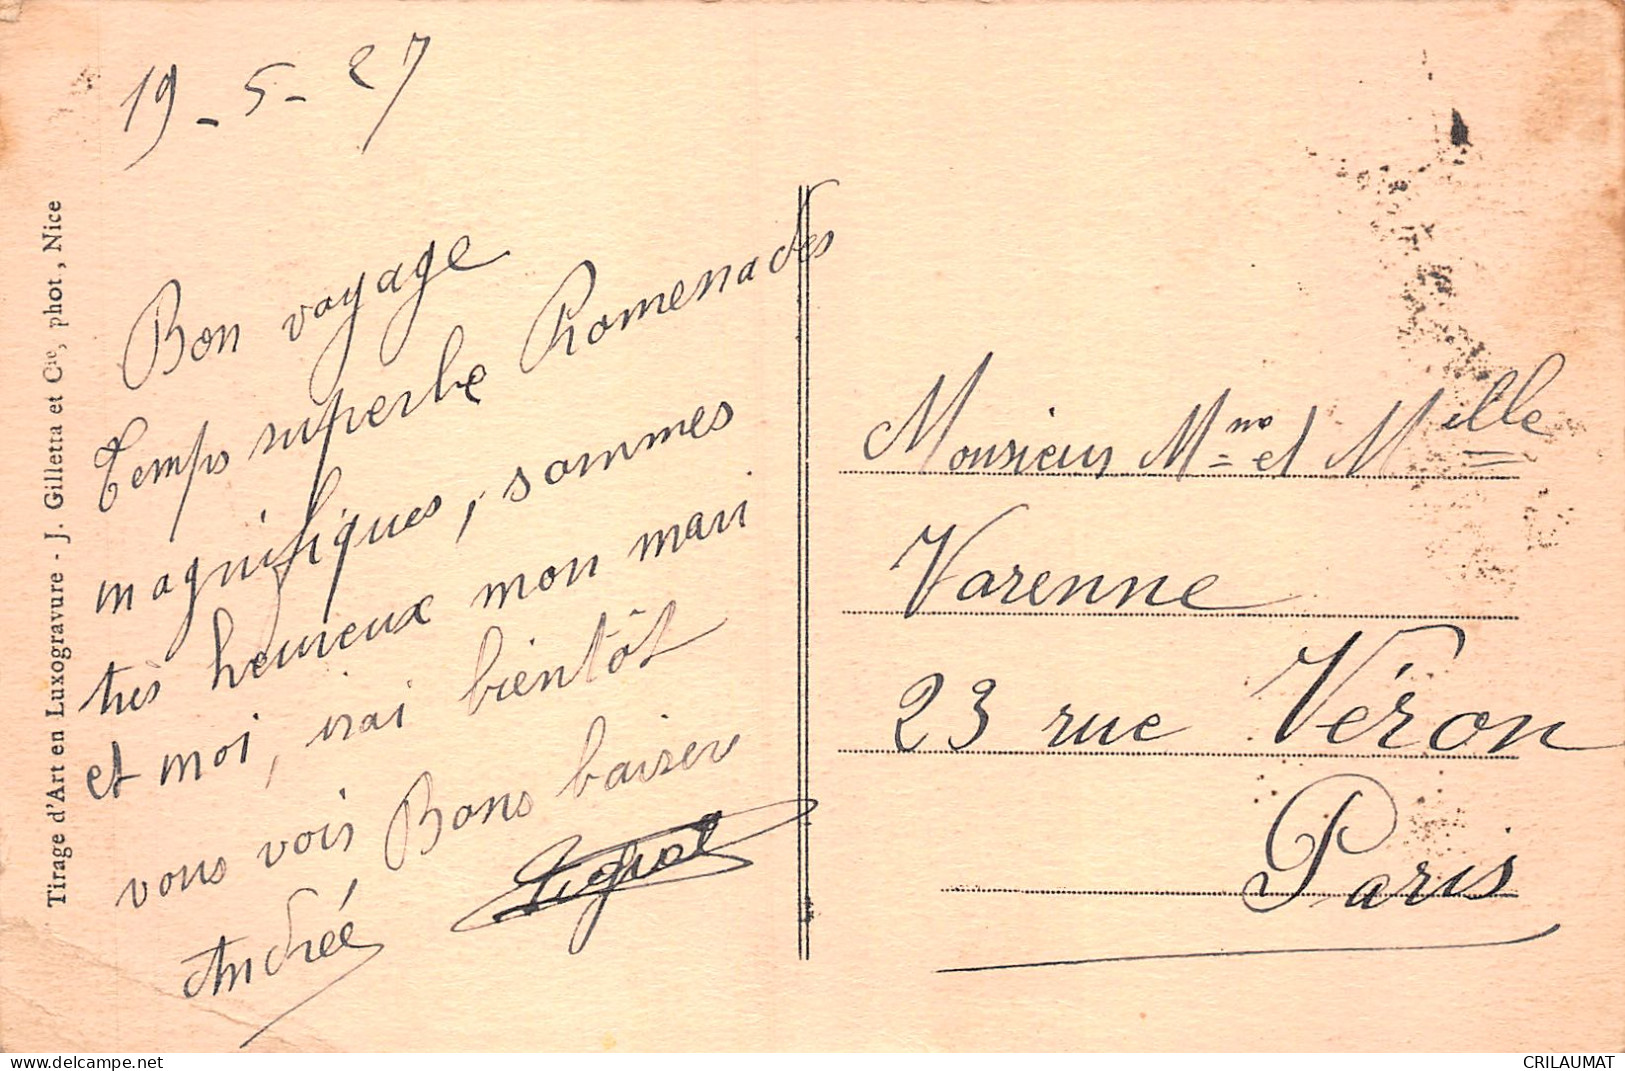 19-5-27
Bon voyage
Temps superbe Promenades
magnifiques, sommes
très heureux mon mari
et moi, vrai bientôt
vous vois Bons baisers
Andrée
Monsieur Mme et Melle
Varenne
23 rue Véron
Paris
Tirage d'Art en Luxogravure - J. Gilletta et Cie, phot, Nice
https://www.delcampe.net
CRILAUMAT